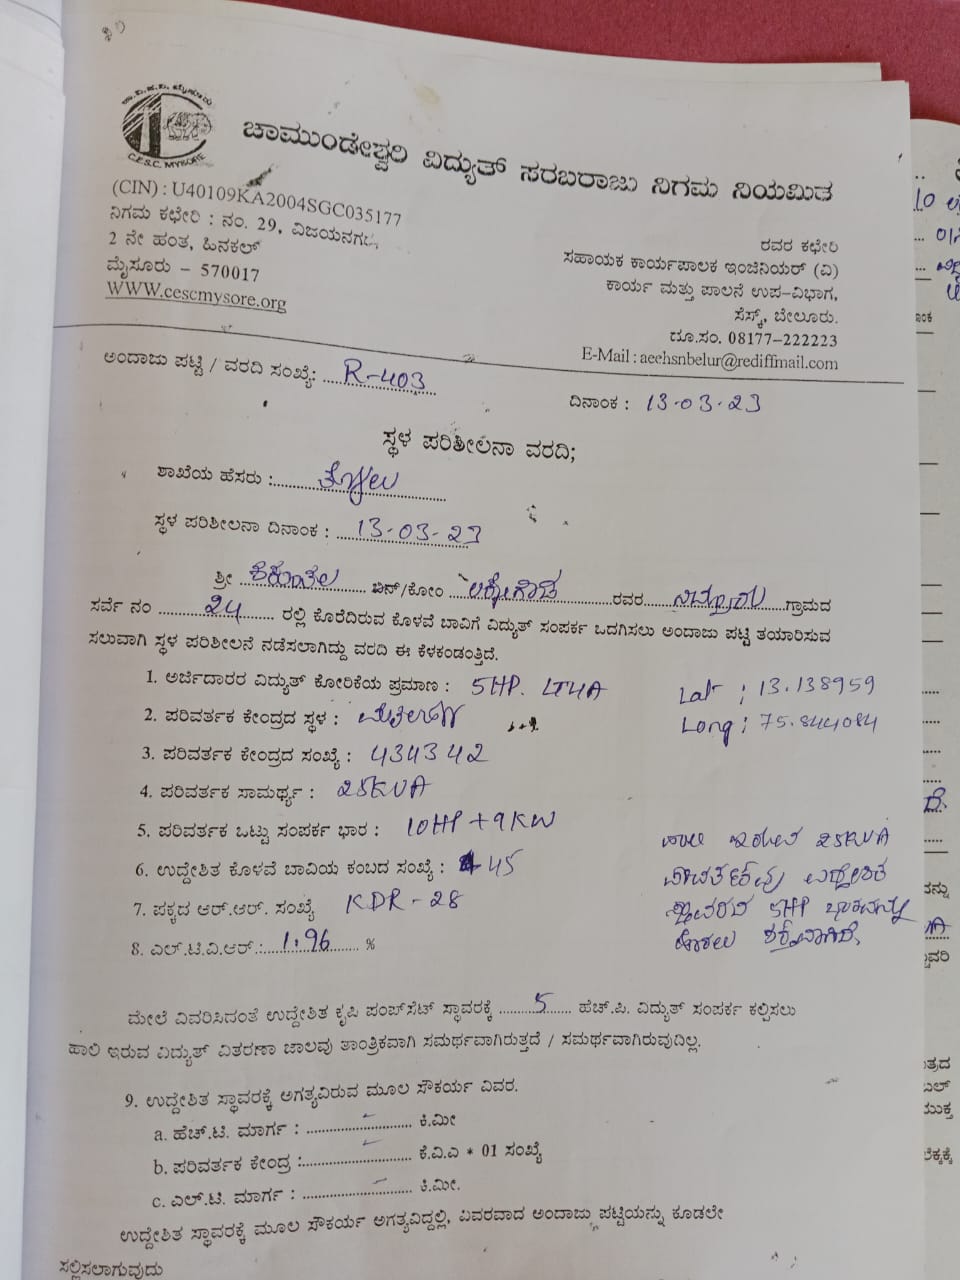 ಚಾ.ವಿ.ಸ.ನಿ. ಮೈಸೂರು
C.E.S.C. MYSORE
ಚಾಮುಂಡೇಶ್ವರಿ ವಿದ್ಯುತ್ ಸರಬರಾಜು ನಿಗಮ ನಿಯಮಿತ
(CIN) : U40109KA2004SGC035177
ನಿಗಮ ಕಛೇರಿ : ನಂ. 29, ವಿಜಯನಗರ,
2 ನೇ ಹಂತ, ಹಿನಕಲ್
ಮೈಸೂರು – 570017
WWW.cescmysore.org
ರವರ ಕಛೇರಿ
ಸಹಾಯಕ ಕಾರ್ಯಪಾಲಕ ಇಂಜಿನಿಯರ್ (ವಿ)
ಕಾರ್ಯ ಮತ್ತು ಪಾಲನೆ ಉಪ–ವಿಭಾಗ,
ಸೆಸ್ಕ್, ಬೇಲೂರು.
ದೂ.ಸಂ. 08177–222223
E-Mail : aeehsnbelur@rediffmail.com
ಅಂದಾಜು ಪಟ್ಟಿ / ವರದಿ ಸಂಖ್ಯೆ: R-403
ದಿನಾಂಕ : 13-03-23
ಸ್ಥಳ ಪರಿಶೀಲನಾ ವರದಿ;
ಶಾಖೆಯ ಹೆಸರು :
ಸ್ಥಳ ಪರಿಶೀಲನಾ ದಿನಾಂಕ : 13-03-23
ಶ್ರೀ ಬಿನ್/ಕೋಂ ರವರ ಗ್ರಾಮದ
ಸರ್ವೆ ನಂ 24 ರಲ್ಲಿ ಕೊರೆದಿರುವ ಕೊಳವೆ ಬಾವಿಗೆ ವಿದ್ಯುತ್ ಸಂಪರ್ಕ ಒದಗಿಸಲು ಅಂದಾಜು ಪಟ್ಟಿ ತಯಾರಿಸುವ
ಸಲುವಾಗಿ ಸ್ಥಳ ಪರಿಶೀಲನೆ ನಡೆಸಲಾಗಿದ್ದು ವರದಿ ಈ ಕೆಳಕಂಡಂತ್ತಿದೆ.
1. ಅರ್ಜಿದಾರರ ವಿದ್ಯುತ್ ಕೋರಿಕೆಯ ಪ್ರಮಾಣ : 5HP. LT4A
Lat : 13.138959
2. ಪರಿವರ್ತಕ ಕೇಂದ್ರದ ಸ್ಥಳ :
Long : 75.844084
3. ಪರಿವರ್ತಕ ಕೇಂದ್ರದ ಸಂಖ್ಯೆ : 434342
4. ಪರಿವರ್ತಕ ಸಾಮರ್ಥ್ಯ : 25KVA
5. ಪರಿವರ್ತಕ ಒಟ್ಟು ಸಂಪರ್ಕ ಭಾರ : 10HP + 9KW
6. ಉದ್ದೇಶಿತ ಕೊಳವೆ ಬಾವಿಯ ಕಂಬದ ಸಂಖ್ಯೆ : 45
7. ಪಕ್ಕದ ಆರ್.ಆರ್. ಸಂಖ್ಯೆ KDR - 28
8. ಎಲ್.ಟಿ.ವಿ.ಆರ್.: 1.96 %
ಹಾಲಿ ಇರುವ 25KVA
ಪರಿವರ್ತಕವು ಉದ್ದೇಶಿತ
ಸ್ಥಾವರದ 5HP ಭಾರವನ್ನು
ಶಕ್ತವಾಗಿದೆ.
ಮೇಲೆ ವಿವರಿಸಿದಂತೆ ಉದ್ದೇಶಿತ ಕೃಷಿ ಪಂಪ್‌ಸೆಟ್ ಸ್ಥಾವರಕ್ಕೆ 5 ಹೆಚ್.ಪಿ. ವಿದ್ಯುತ್ ಸಂಪರ್ಕ ಕಲ್ಪಿಸಲು
ಹಾಲಿ ಇರುವ ವಿದ್ಯುತ್ ವಿತರಣಾ ಜಾಲವು ತಾಂತ್ರಿಕವಾಗಿ ಸಮರ್ಥವಾಗಿರುತ್ತದೆ / ಸಮರ್ಥವಾಗಿರುವುದಿಲ್ಲ.
9. ಉದ್ದೇಶಿತ ಸ್ಥಾವರಕ್ಕೆ ಅಗತ್ಯವಿರುವ ಮೂಲ ಸೌಕರ್ಯ ವಿವರ.
a. ಹೆಚ್.ಟಿ. ಮಾರ್ಗ : – ಕಿ.ಮೀ
b. ಪರಿವರ್ತಕ ಕೇಂದ್ರ : – ಕೆ.ವಿ.ಎ * 01 ಸಂಖ್ಯೆ
c. ಎಲ್.ಟಿ. ಮಾರ್ಗ : – ಕಿ.ಮೀ.
ಉದ್ದೇಶಿತ ಸ್ಥಾವರಕ್ಕೆ ಮೂಲ ಸೌಕರ್ಯ ಅಗತ್ಯವಿದ್ದಲ್ಲಿ, ವಿವರವಾದ ಅಂದಾಜು ಪಟ್ಟಿಯನ್ನು ಕೂಡಲೇ
ಸಲ್ಲಿಸಲಾಗುವುದು